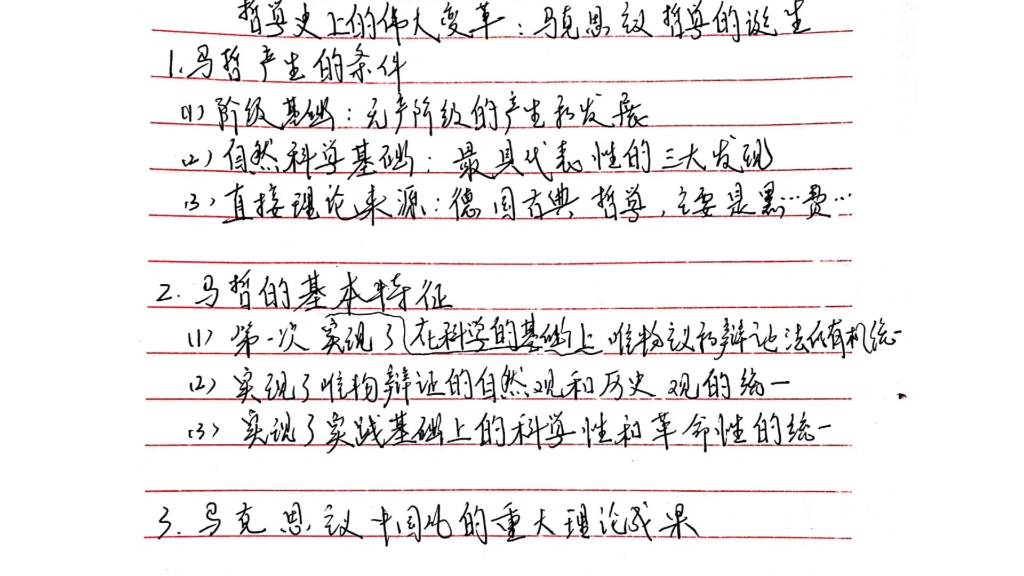 哲学史上的伟大变革：马克思主义哲学的诞生
1.马哲产生的条件
(1)阶级基础：无产阶级的产生和发展
(2)自然科学基础：最具代表性的三大发现
(3)直接理论来源：德国古典哲学，主要是黑…费…
2.马哲的基本特征
(1)第一次实现了在科学的基础上唯物主义和辩证法的有机统一
(2)实现了唯物辩证的自然观和历史观的统一
(3)实现了实践基础上的科学性和革命性的统一
3.马克思主义中国化的重大理论成果